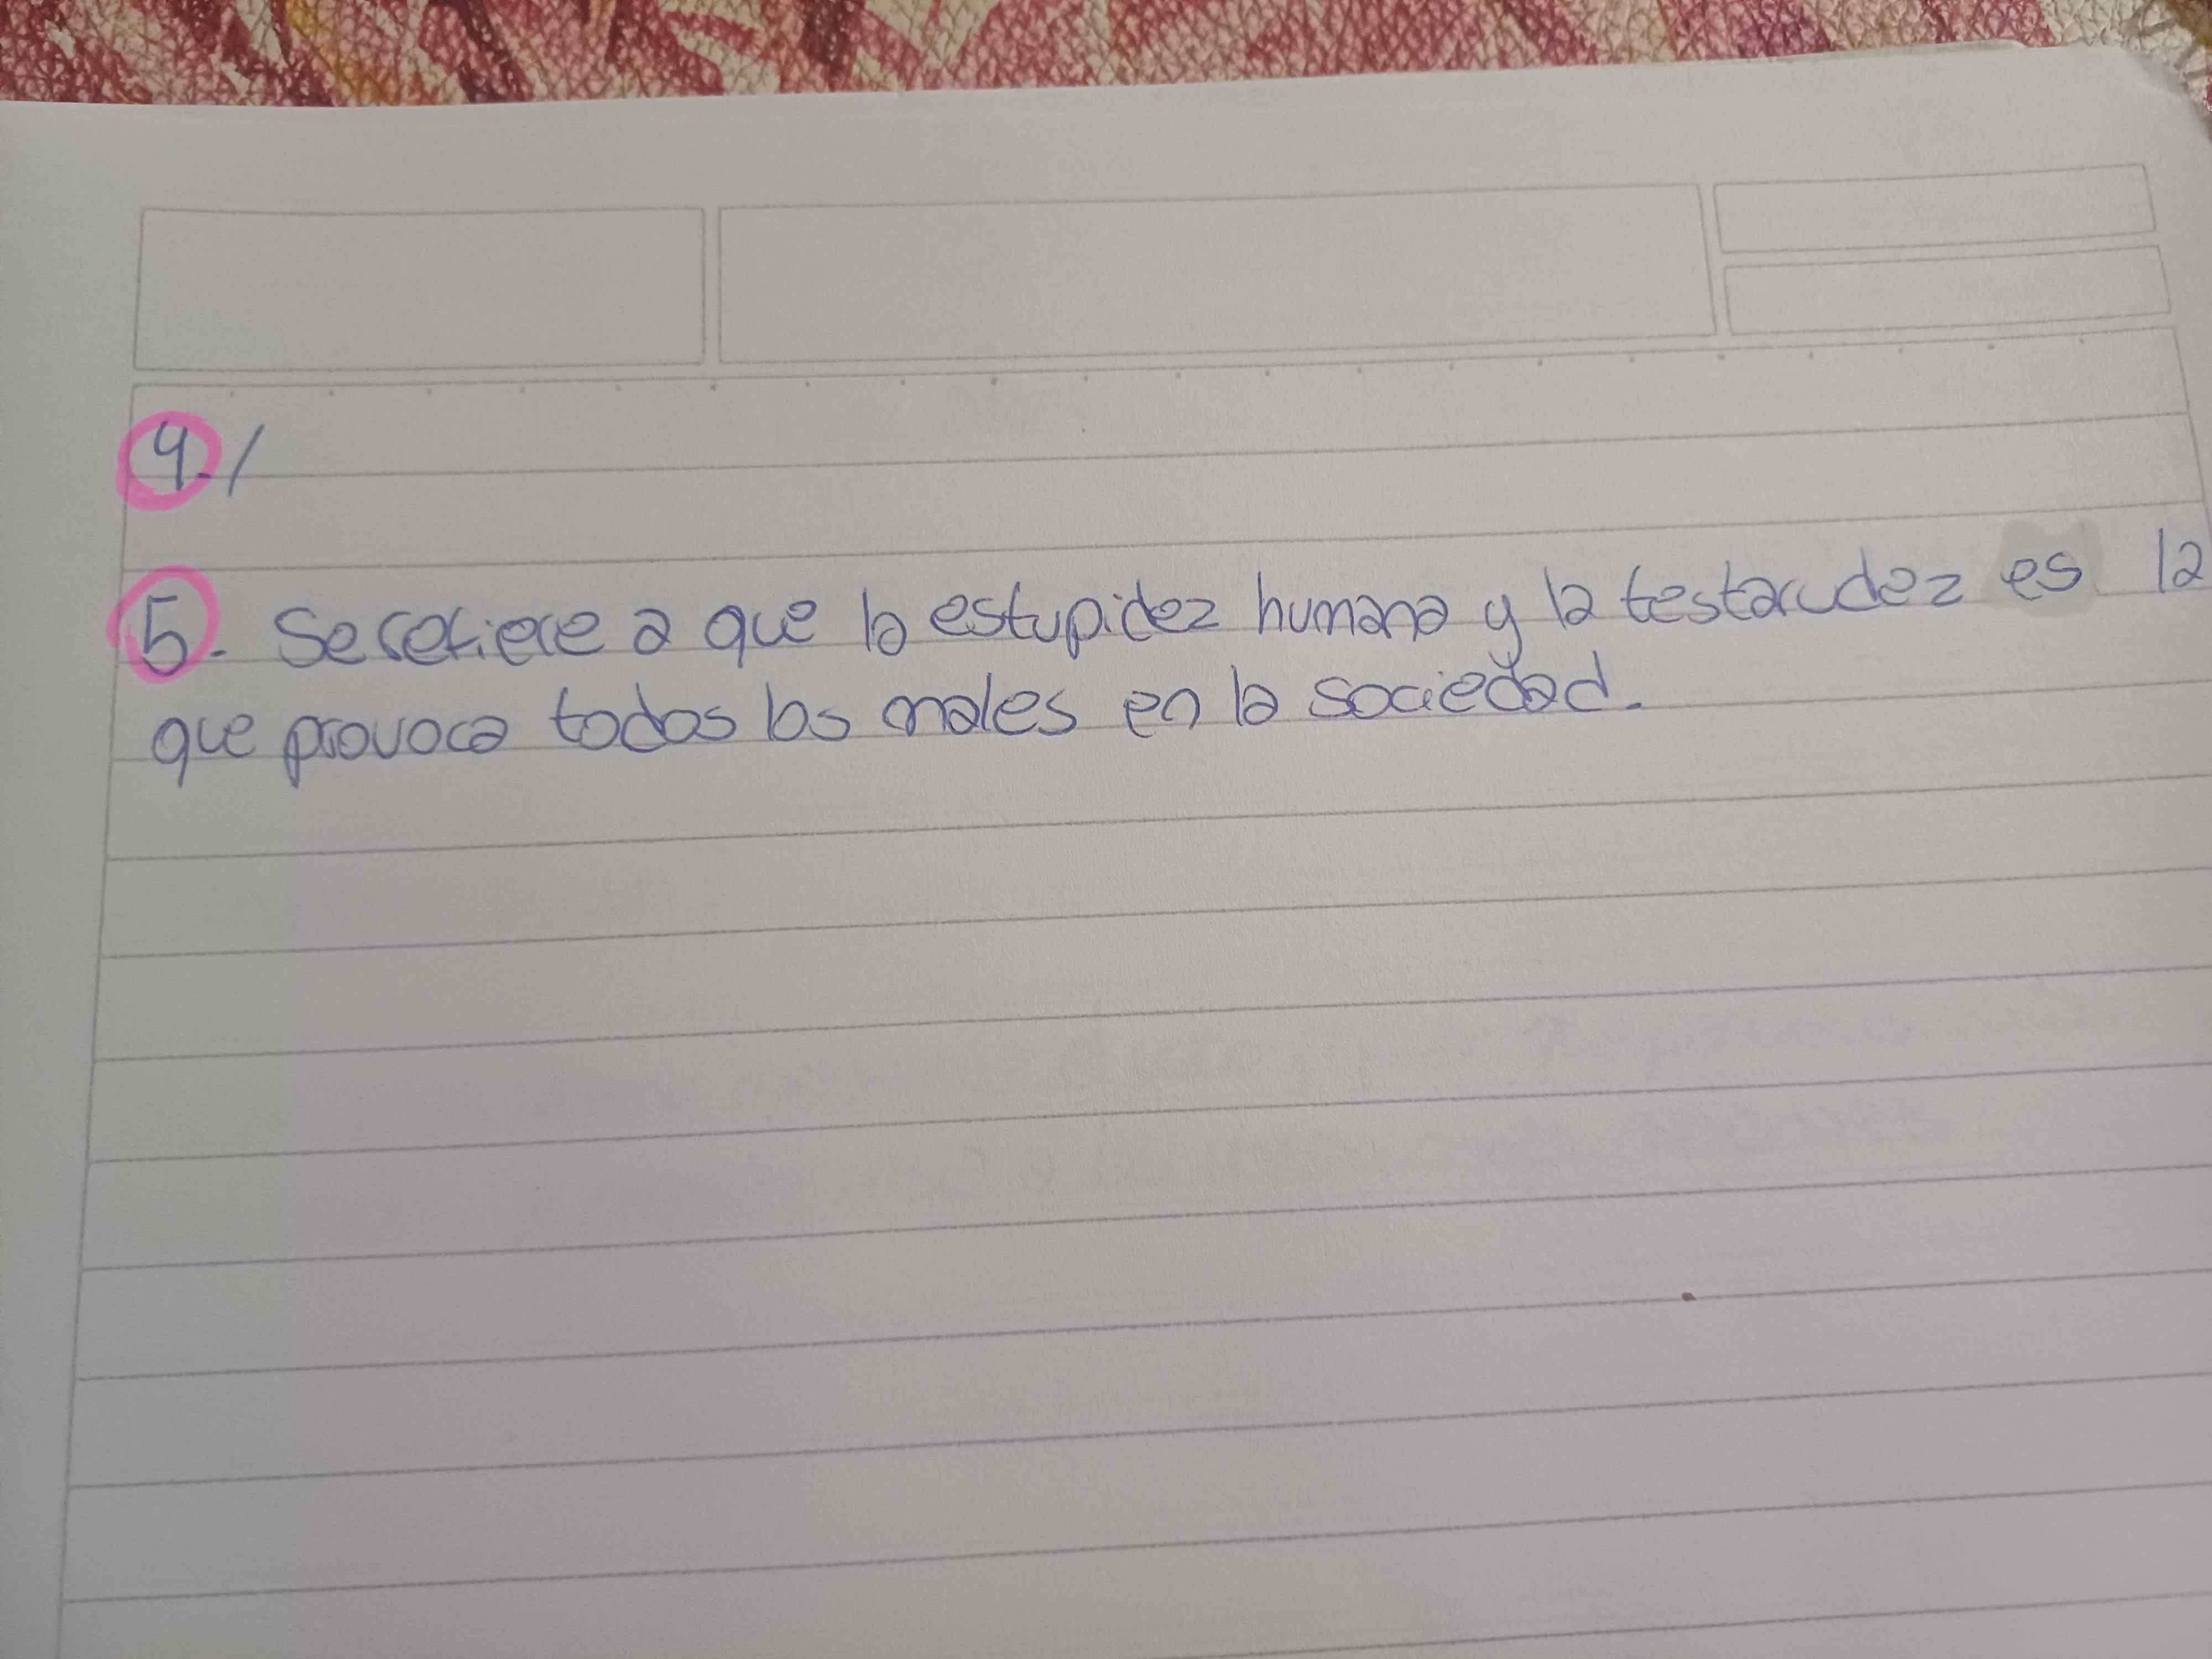 4. /
5. Se refiere a que la estupidez humana y la testarudez es la
que provoca todos los males en la sociedad.